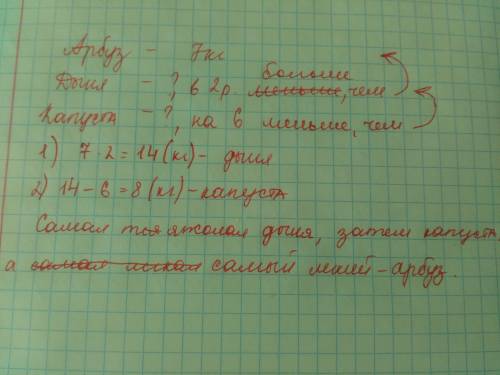 Арбуз - 7кг
Дыня - ?, в 2р. больше меньше, чем
Капуста - ?, на 6 меньше, чем
1) 7·2=14(кг)- дыня
2) 14-6=8(кг)-капуста
Самая тя яжолая дыня, затем капуста
а самая лёгкая самый лёгкий-арбуз.